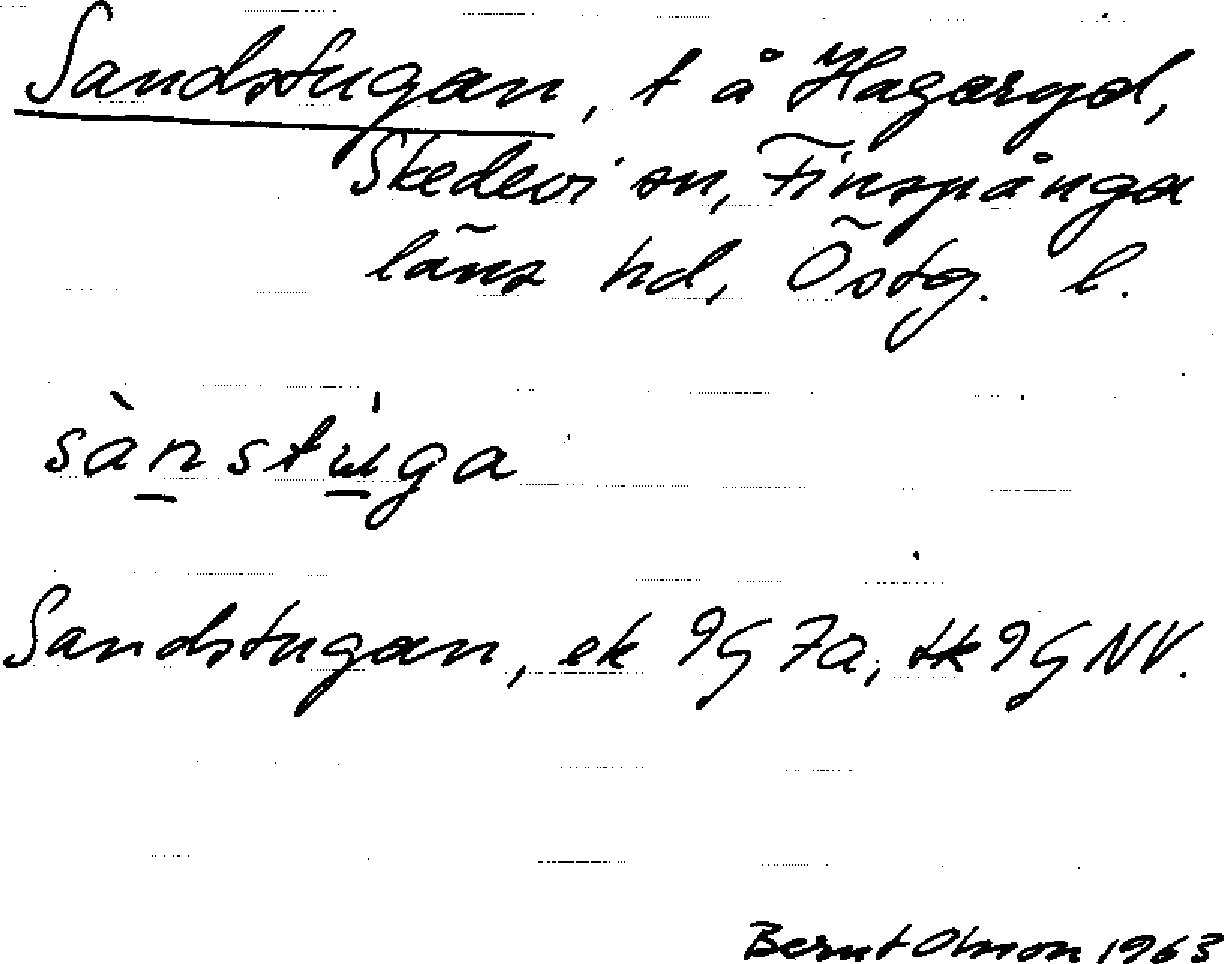 Sandstugan, t å Hagargd,
Skedevi sn, Finspånga
läns hd, Östg. l.
sànstu̲ga
Sandstugan, ek 9G 7a, tk 9G NV.
Bernt Olsson 1963